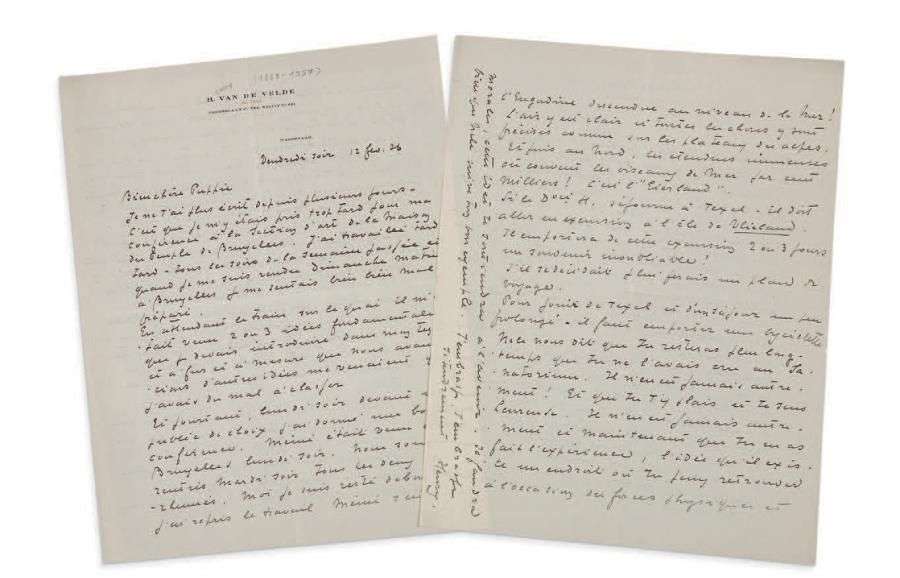 (1863-1957)
H. VAN DE VELDE
Vendredi soir 12 fév. 26
Bien chère Puppie
Je ne t'ai plus écrit depuis plusieurs jours -
C'est que je m'y étais pris trop tard pour ma
conférence à la Section d'art de la Maison
du Peuple de Bruxelles. J'ai travaillé tard
tard - tous les soirs de la semaine passée et
quand je me suis rendu Dimanche matin
à Bruxelles je me sentais bien bien mal
préparé.
En attendant le train sur le quai il m'
était venu 2 ou 3 idées fondamentales
que je devais introduire dans mon
et à fur et à mesure que nous
d'autres idées me venaient
j'avais du mal à classer
Et pourtant, lundi soir devant
public de choix j'ai donné une
conférence. Mémé était venue
Bruxelles lundi soir. Nous
rentrés Mardi soir tous les deux
-rhumés. Moi je suis resté
j'ai repris le travail Mémé
l'Engadine descendue au niveau de la mer!
L'air y est clair et toutes les choses y sont
précises comme sur les plateaux des alpes.
Et puis au Nord, les étendues immenses
où couvent les oiseaux de mer par cent
milliers! C'est l'"Eierland".
Si le Doct H. séjourne à Texel - il doit
aller en excursion à l'île de Vlieland.
Il emportera de cette excursion 2 ou 3 jours
un souvenir inoubliable!
S'il se décidait je lui ferais un plan de
voyage.
Pour jouir de Texel et d'un séjour un peu
prolongé - il faut emporter une bicyclette
Nele nous dit que tu resteras plus long-
temps que tu ne l'avais cru au Sa-
natorium. Il n'en est jamais autre-
ment! Et que tu t'y plais et te sens
heureuse. Il n'en est jamais autre-
ment et maintenant que tu en as
fait l'expérience, l'idée qu'il exis-
te un endroit où tu peux retrouver
à l'occasion des forces physiques et
morales, cette idée te soutiendra à l'avenir
bien que Nele son exemple. Je t'embrasse, t'embrasse
tendrement Henry.